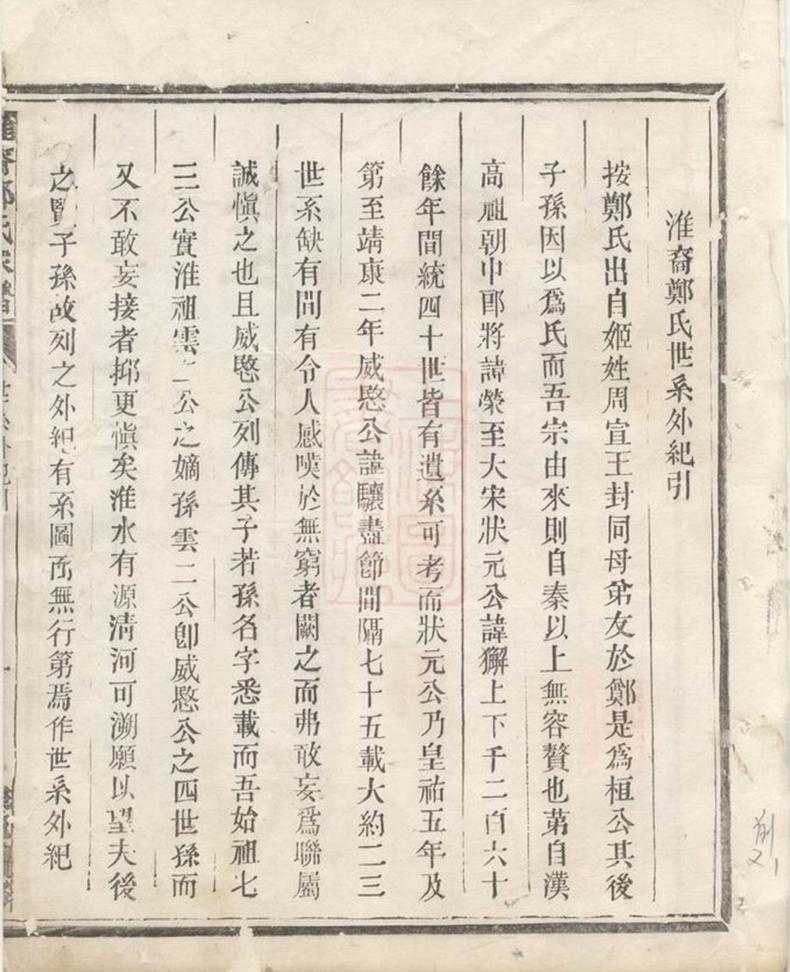 淮裔鄭氏世系外紀引
按鄭氏出自姬姓周宣王封同母弟友於鄭是為桓公其後
子孫因以爲氏而吾宗由來則自秦以上無容贅也第自漢
高祖朝中郎將諱榮至大宋狀元公諱獬上下千二百六十
餘年間統四十世皆有遺系可考而狀元公乃皇祐五年及
第至靖康二年威愍公諱驤盡節間隔七十五載大約二三
世系缺有間有令人感嘆於無窮者闕之而弗敢妄爲聯屬
誠愼之也且威愍公列傳其子若孫名字悉載而吾始祖七
三公實淮祖雲二公之嫡孫雲二公卽威愍公之四世孫而
又不敢妄接者抑更愼矣淮水有源淸河可溯願以望夫後
之賢子孫故列之外紀有系圖而無行第焉作世系外紀
淮裔鄭氏家譜
世系外紀引
一